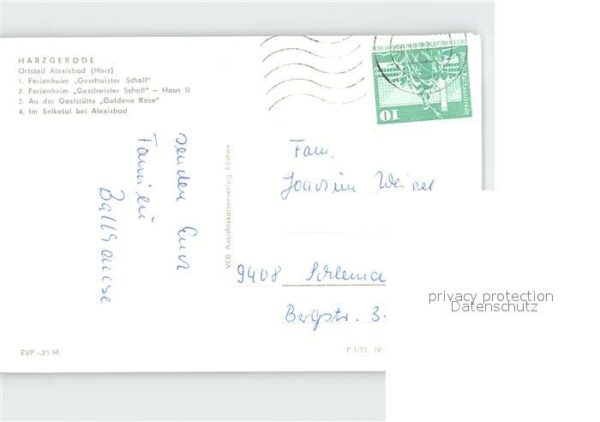 HARZGERODE
Ortsteil Alexisbad (Harz)
1. Ferienheim „Geschwister Scholl"
2. Ferienheim „Geschwister Scholl" - Haus II
3. An der Gaststätte „Goldene Rose"
4. Im Selketal bei Alexisbad
senden Euch
Familie
VEB Ansichtskartenverlag Köthen
10
Fam.
Joachim
9408 Schlema
Bergstr. 3
EVP -,25 M
P 1/73 IV
privacy protection
Datenschutz